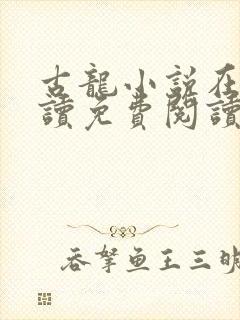 古龍小説在
讀免費閱讀
吞拏鱼王三明